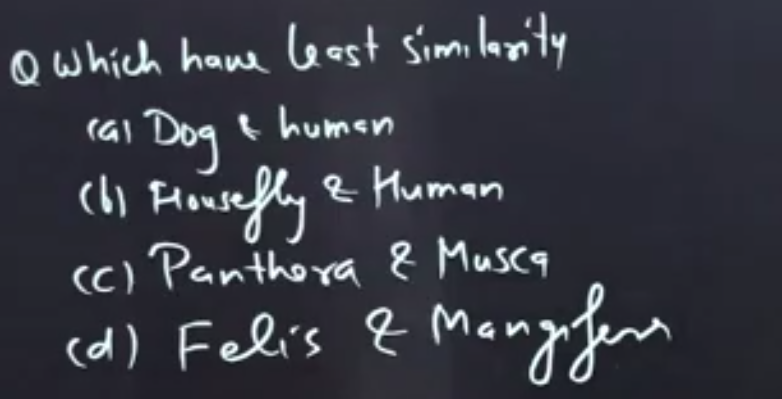 Q Which have least similarity
(a) Dog & human
(b) Housefly & Human
(c) Panthera & Musca
(d) Felis & Mangifera